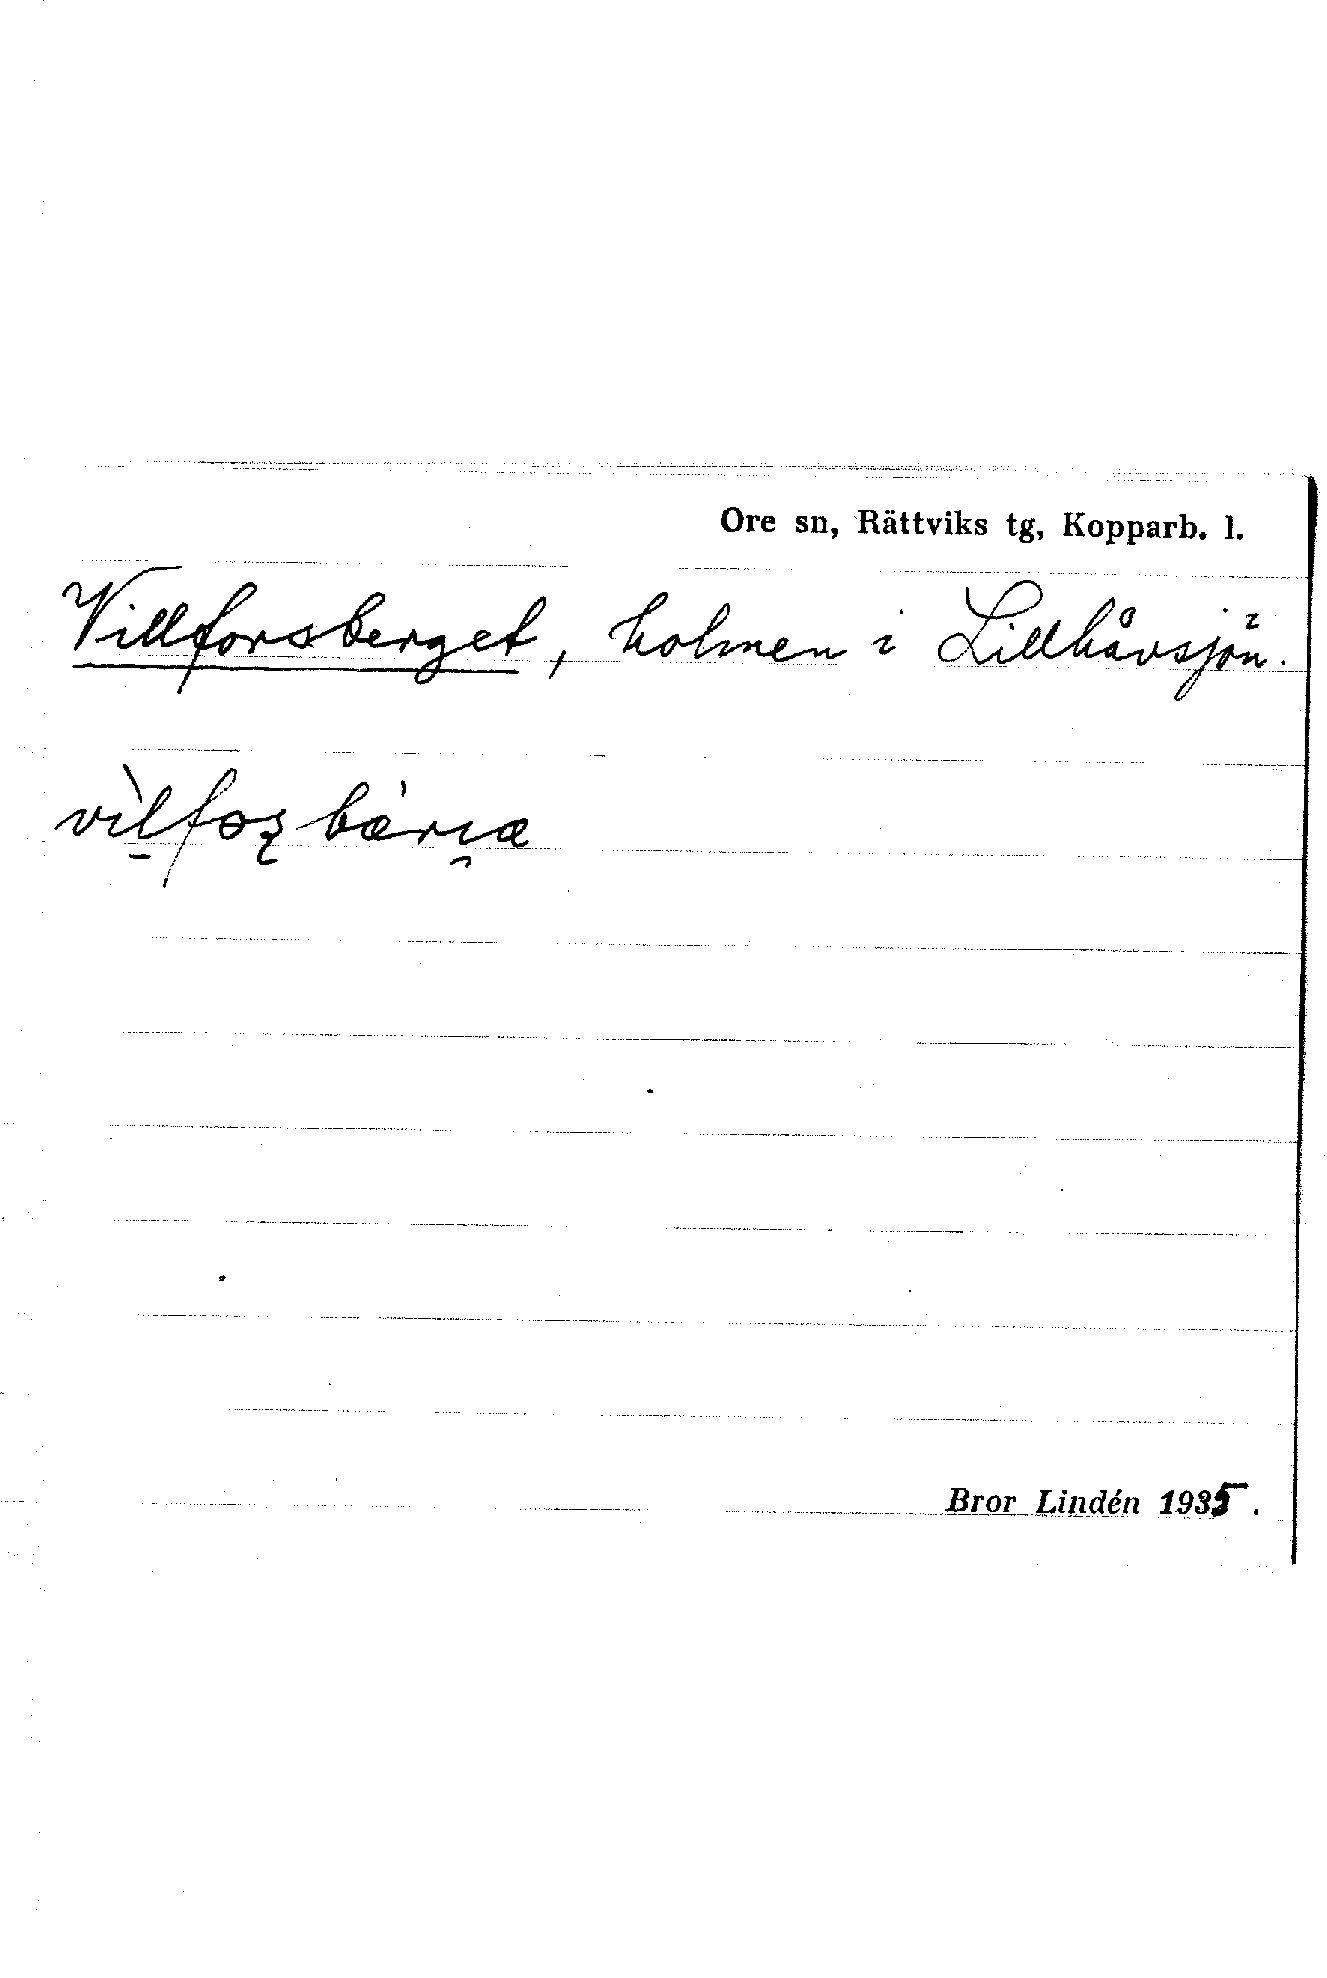 Ore sn, Rättviks tg, Kopparb. l.
Villforsberget, holmen i Lillhåvsjön.
Bror Lindén 1935.